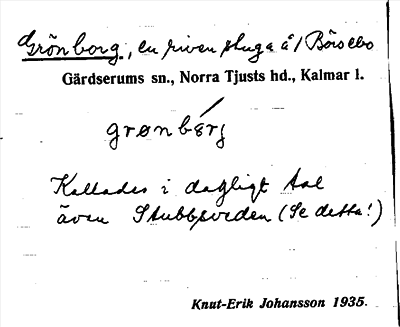 Grönborg, en riven stuga å/ Börsebo
Gärdserums sn., Norra Tjusts hd., Kalmar l.
grønbérg
Kallades i dagligt tal
även Stubbsveden (Se detta!)
Knut-Erik Johansson 1935.